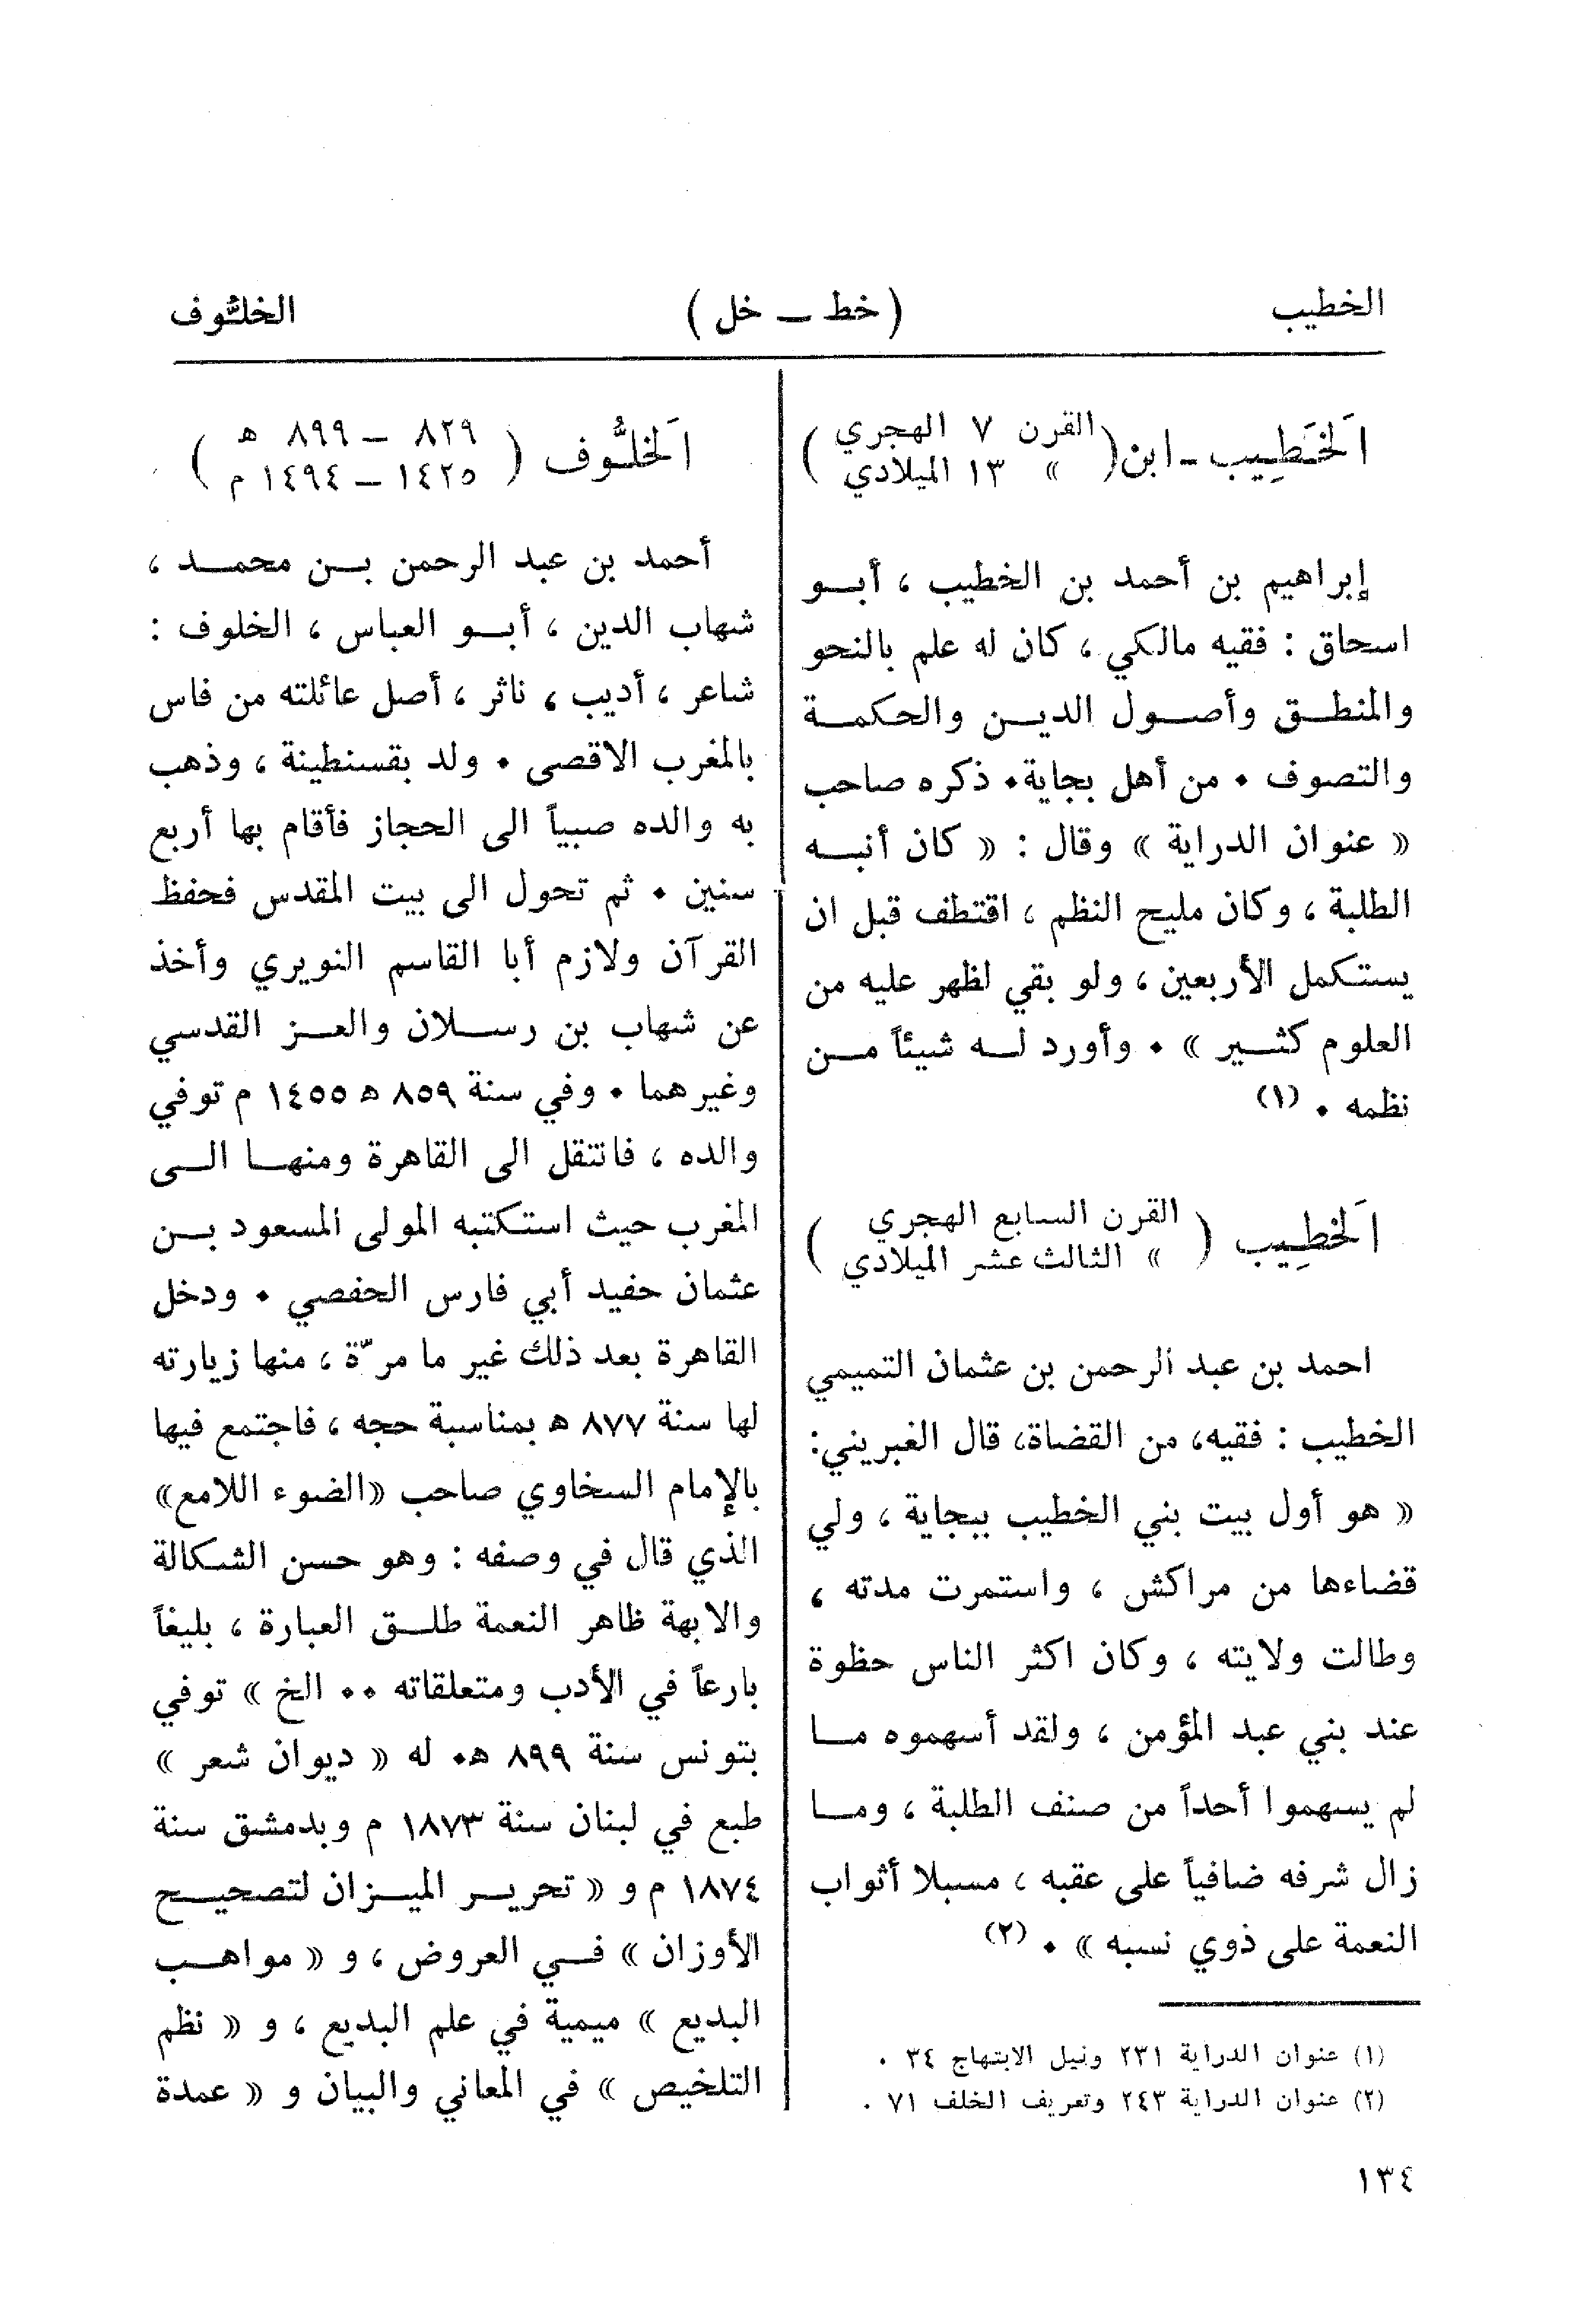 الخطيب
( خط — خل )
الخلثُّوف
اَلخَطِيب - ابن ( القرن ٧ الهجري
» ١٣ الميلادي )
إبراهيم بن أحمد بن الخطيب ، أبو
اسحاق : فقيه مالكي ، كان له علم بالنحو
والمنطق وأصول الدين والحكمة
والتصوف . من أهل بجاية. ذكره صاحب
« عنوان الدراية » وقال : « كان أنبه
الطلبة ، وكان مليح النظم ، اقتطف قبل ان
يستكمل الأربعين ، ولو بقي لظهر عليه من
العلوم كثير » . وأورد له شيئاً من
نظمه . (١)
اَلخطِيب ( القرن السابع الهجري
» الثالث عشر الميلادي )
احمد بن عبد الرحمن بن عثمان التميمي
الخطيب : فقيه، من القضاة، قال الغبريني:
« هو أول بيت بني الخطيب ببجاية ، ولي
قضاءها من مراكش ، واستمرت مدته ،
وطالت ولايته ، وكان اكثر الناس حظوة
عند بني عبد المؤمن ، ولقد أسهموه ما
لم يسهموا أحداً من صنف الطلبة ، وما
زال شرفه ضافياً على عقبه ، مسبلا أثواب
النعمة على ذوي نسبه » . (٢)
(١) عنوان الدراية ٢٣١ ونيل الابتهاج ٣٤ .
(٢) عنوان الدراية ٢٤٣ وتعريف الخلف ٧١ .
اَلخلُّوف ( ٨٢٩ — ٨٩٩ ه
١٤٢٥ — ١٤٩٤ م )
أحمد بن عبد الرحمن بن محمد ،
شهاب الدين ، أبو العباس ، الخلوف :
شاعر ، أديب ، ناثر ، أصل عائلته من فاس
بالمغرب الاقصى . ولد بقسنطينة ، وذهب
به والده صبياً الى الحجاز فأقام بها أربع
سنين . ثم تحول الى بيت المقدس فحفظ
القرآن ولازم أبا القاسم النويري وأخذ
عن شهاب بن رسلان والعز القدسي
وغيرهما . وفي سنة ٨٥٩ ه ١٤٥٥ م توفي
والده ، فانتقل الى القاهرة ومنها الى
المغرب حيث استكتبه المولى المسعود بن
عثمان حفيد أبي فارس الحفصي . ودخل
القاهرة بعد ذلك غير ما مرّة ، منها زيارته
لها سنة ٨٧٧ ه بمناسبة حجه ، فاجتمع فيها
بالإمام السخاوي صاحب «الضوء اللامع»
الذي قال في وصفه : وهو حسن الشكالة
والابهة ظاهر النعمة طلق العبارة ، بليغاً
بارعاً في الأدب ومتعلقاته .. الخ » توفي
بتونس سنة ٨٩٩ ه. له « ديوان شعر »
طبع في لبنان سنة ١٨٧٣ م وبدمشق سنة
١٨٧٤ م و « تحرير الميزان لتصحيح
الأوزان » في العروض ، و « مواهب
البديع » ميمية في علم البديع ، و « نظم
التلخيص » في المعاني والبيان و « عمدة
١٣٤